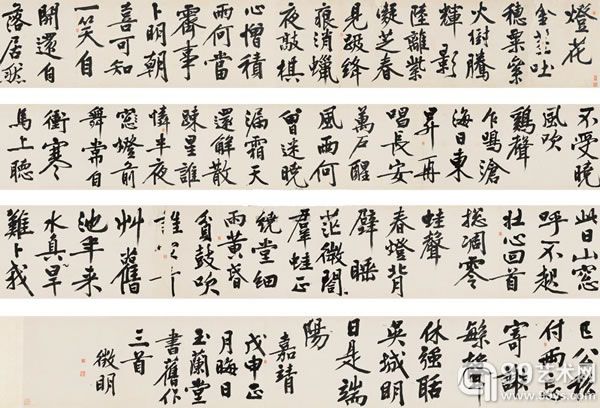 燈花
金吐
穗
火樹騰
輝影
陸離紫
凝芝春
見絳
痕消蠟
夜敲棋
心憎積
雨何當
霽事
卜明朝
喜可知
一笑自
開還自
落居然
不受晚
風吹
雞聲
乍鳴滄
海日東
昇再
唱長安
萬戶醒
風雨何
曾迷曉
漏霜天
還解散
踈星誰
憐半夜
窓燈前
舞常自
衝寒
馬上聽
此日山窓
呼不起
壯心回首
揔凋零
蛙聲
春燈背
壁睡
茫微閣
羣蛙正
繞堂細
雨黃昏
貪鼓吹
誰
艸舊
池半來
水真旱
難卜我
已公私
付兩
寄謝
繁聲
休強聒
吳城明
日是端
陽
嘉靖
戊申正
月晦日
玉蘭堂
書舊作
三首
徵明
99艺术网
99ys.com